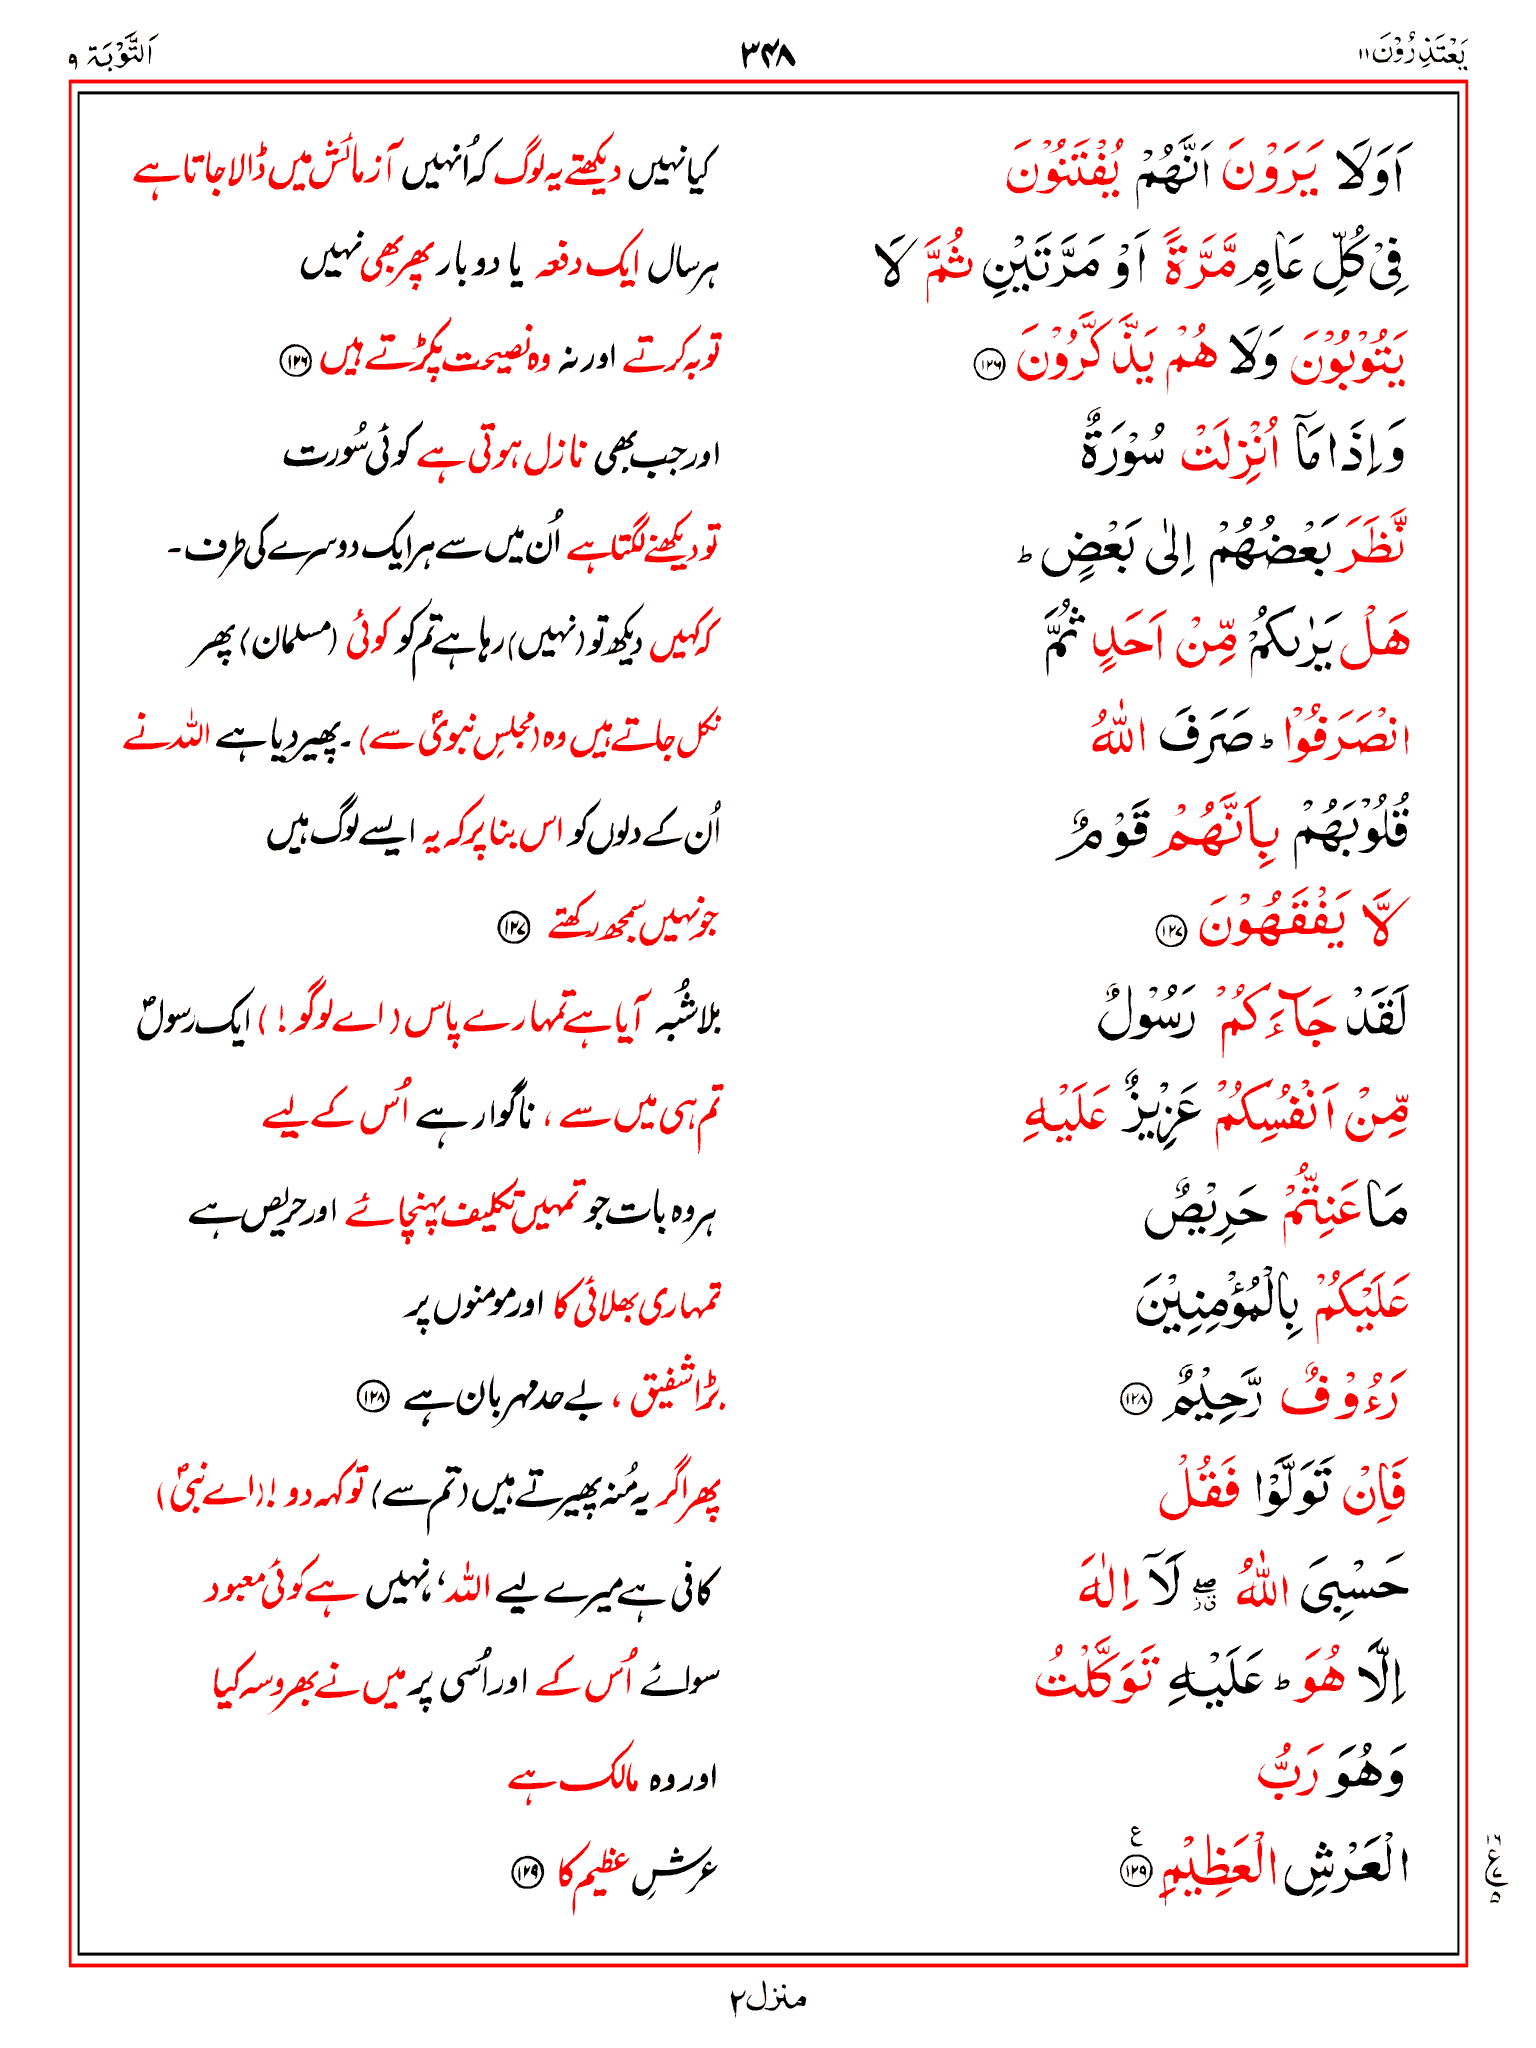 یَعْتَذِرُوْنَ ۱۱ ۳۴۸ اَلتَّوْبَۃ ۹
اَوَلَا یَرَوْنَ اَنَّهُمْ یُفْتَنُوْنَ کیا نہیں دیکھتے یہ لوگ کہ اُنہیں آزمائش میں ڈالا جاتا ہے
فِیْ كُلِّ عَامٍ مَّرَّةً اَوْ مَرَّتَیْنِ ثُمَّ لَا ہر سال ایک دفعہ یا دو بار پھر بھی نہیں
یَتُوْبُوْنَ وَلَا هُمْ یَذَّكَّرُوْنَ ۱۲۶ توبہ کرتے اور نہ وہ نصیحت پکڑتے ہیں ۱۲۶
وَاِذَا مَاۤ اُنْزِلَتْ سُوْرَةٌ اور جب بھی نازل ہوتی ہے کوئی سُورت
نَّظَرَ بَعْضُهُمْ اِلٰی بَعْضٍ ؕ تو دیکھنے لگتا ہے اُن میں سے ہر ایک دوسرے کی طرف۔
هَلْ یَرٰىكُمْ مِّنْ اَحَدٍ ثُمَّ کہ کہیں دیکھ تو (نہیں) رہا ہے تم کو کوئی (مسلمان) پھر
انْصَرَفُوْا ؕ صَرَفَ اللّٰهُ نکل جاتے ہیں وہ (مجلسِ نبویؐ سے)۔ پھیر دیا ہے اللہ نے
قُلُوْبَهُمْ بِاَنَّهُمْ قَوْمٌ اُن کے دلوں کو اس بنا پر کہ یہ ایسے لوگ ہیں
لَّا یَفْقَهُوْنَ ۱۲۷ جو نہیں سمجھ رکھتے ۱۲۷
لَقَدْ جَآءَكُمْ رَسُوْلٌ بلاشُبہ آیا ہے تمہارے پاس (اے لوگو!) ایک رسولؐ
مِّنْ اَنْفُسِكُمْ عَزِیْزٌ عَلَیْهِ تم ہی میں سے، ناگوار ہے اُس کے لیے
مَا عَنِتُّمْ حَرِیْصٌ ہر وہ بات جو تمہیں تکلیف پہنچائے اور حریص ہے
عَلَیْكُمْ بِالْمُؤْمِنِیْنَ تمہاری بھلائی کا اور مومنوں پر
رَءُوْفٌ رَّحِیْمٌ ۱۲۸ بڑا شفیق، بے حد مہربان ہے ۱۲۸
فَاِنْ تَوَلَّوْا فَقُلْ پھر اگر یہ مُنہ پھیرتے ہیں (تم سے) تو کہہ دو! (اے نبیؐ)
حَسْبِیَ اللّٰهُ ۖق ز لَاۤ اِلٰهَ کافی ہے میرے لیے اللہ، نہیں ہے کوئی معبود
اِلَّا هُوَ ؕ عَلَیْهِ تَوَكَّلْتُ سوائے اُس کے اور اُسی پر میں نے بھروسہ کیا
وَهُوَ رَبُّ اور وہ مالک ہے
الْعَرْشِ الْعَظِیْمِ ۱۲۹ ع عرشِ عظیم کا ۱۲۹
۱۶ ع ۵
منزل ۲